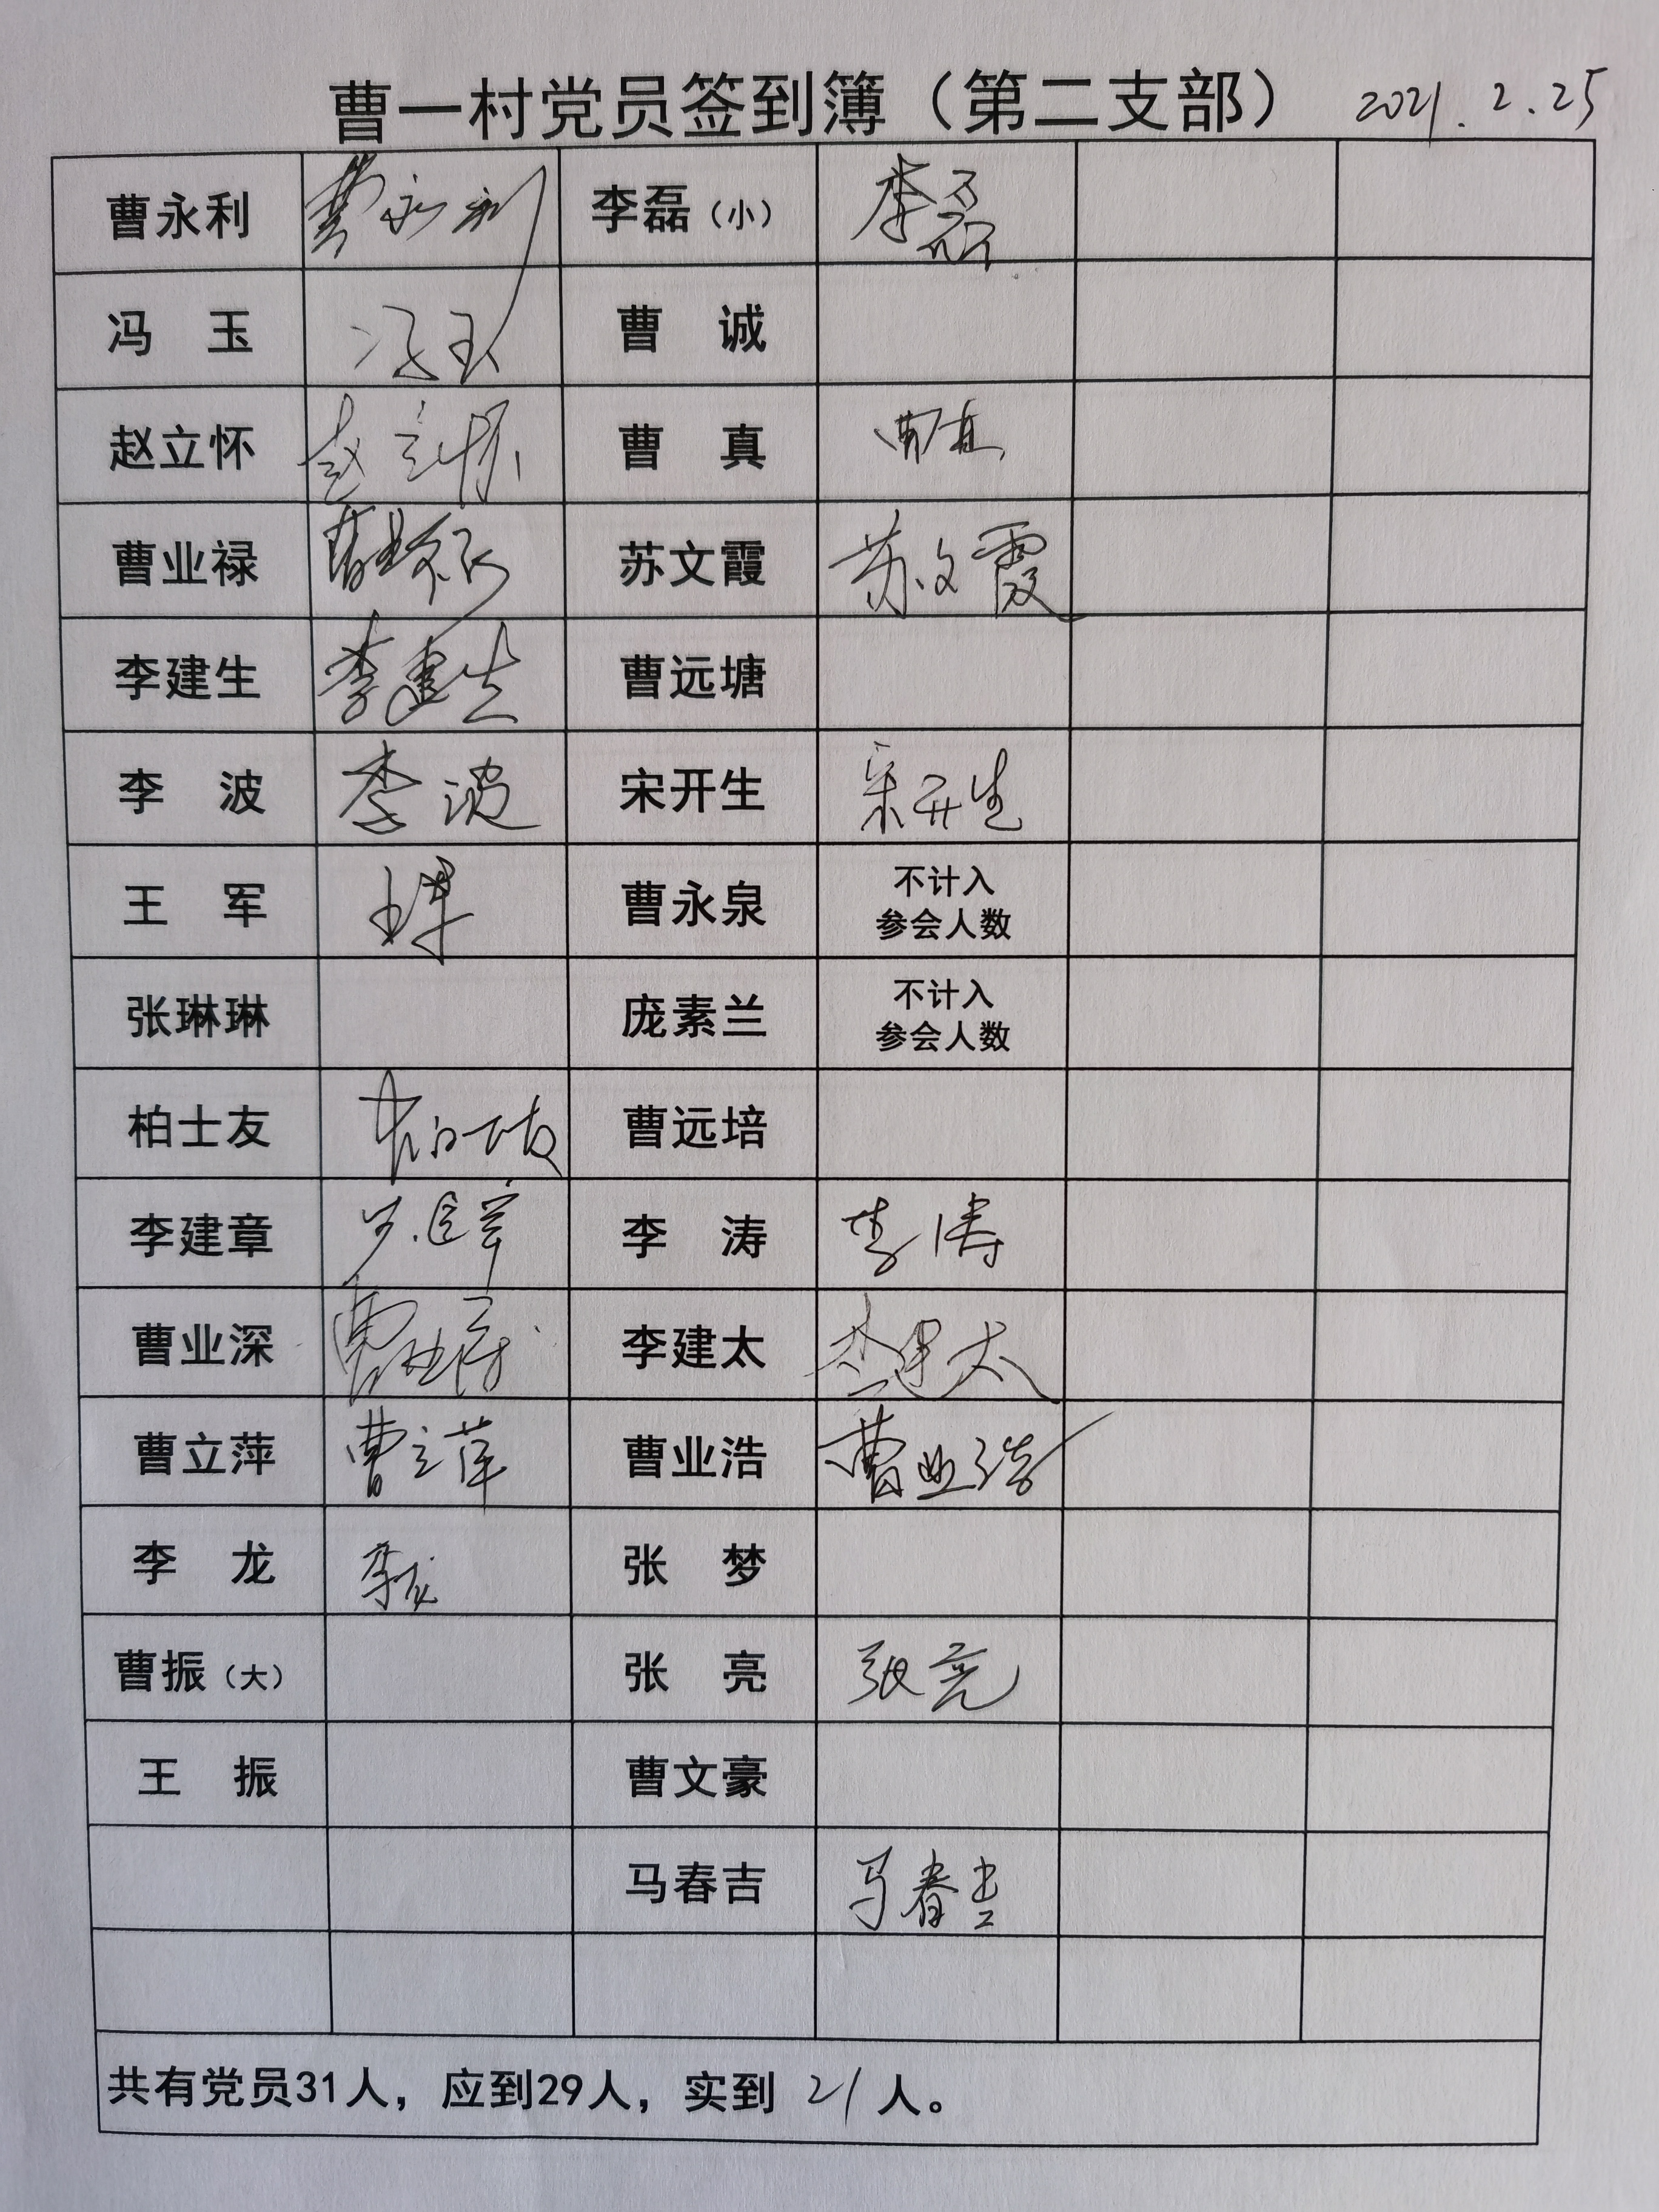 曹一村党员签到簿（第二支部） 2021.2.25
曹永利 曹永利 李磊（小） 李磊
冯 玉 冯玉 曹 诚
赵立怀 赵立怀 曹 真 曹真
曹业禄 曹业禄 苏文霞 苏文霞
李建生 李建生 曹远塘
李 波 李波 宋开生 宋开生
王 军 王军 曹永泉 不计入
参会人数
张琳琳 庞素兰 不计入
参会人数
柏士友 柏士友 曹远培
李建章 李建章 李 涛 李涛
曹业深 曹业深 李建太 李建太
曹立萍 曹立萍 曹业浩 曹业浩
李 龙 李龙 张 梦
曹振（大） 张 亮 张亮
王 振 曹文豪
马春吉 马春吉
共有党员31人，应到29人，实到 21 人。